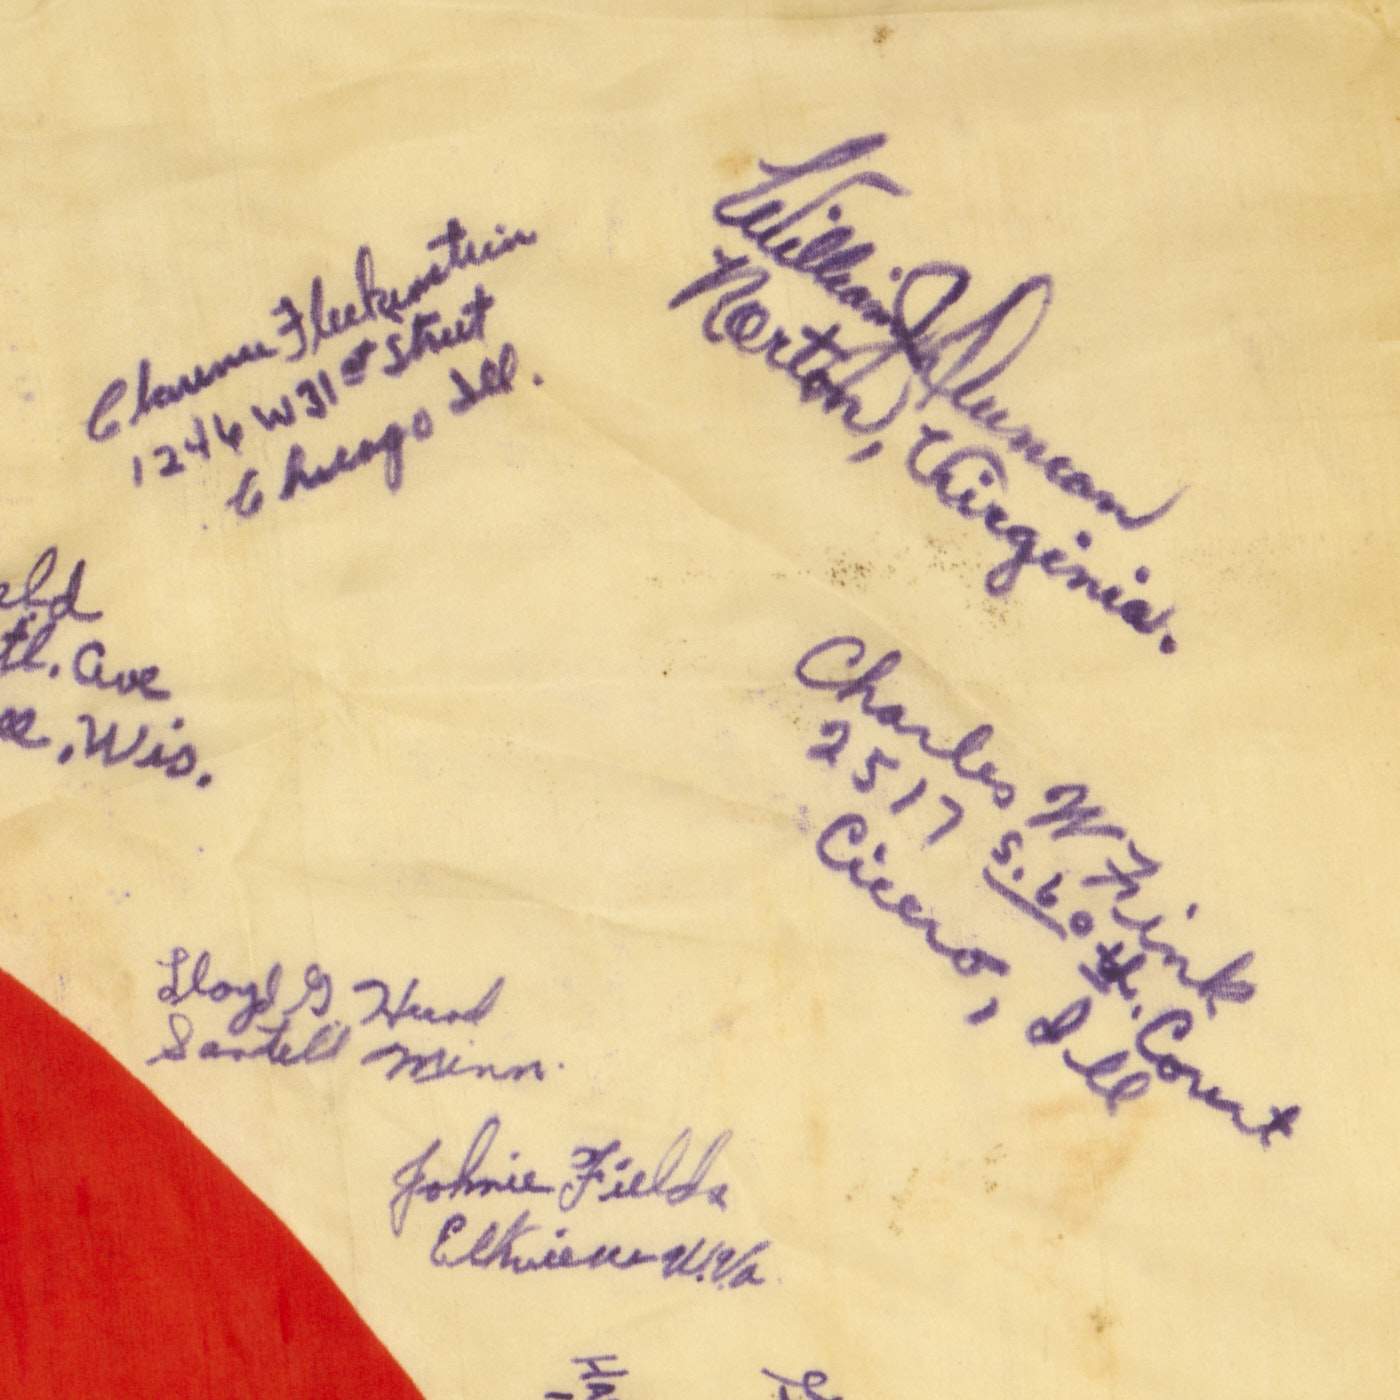 Clarence Fleckenstein
1246 W 31st Street
Chicago Ill.
William J Duncan
Norton, Virginia.
eld
th. Ave
ee, Wis.
Charles W Fink
2517 S. 60th. Court
Cicero, Ill
Lloyd G Hurd
Sartell Minn.
Johnie Fields
W.Va
Ha